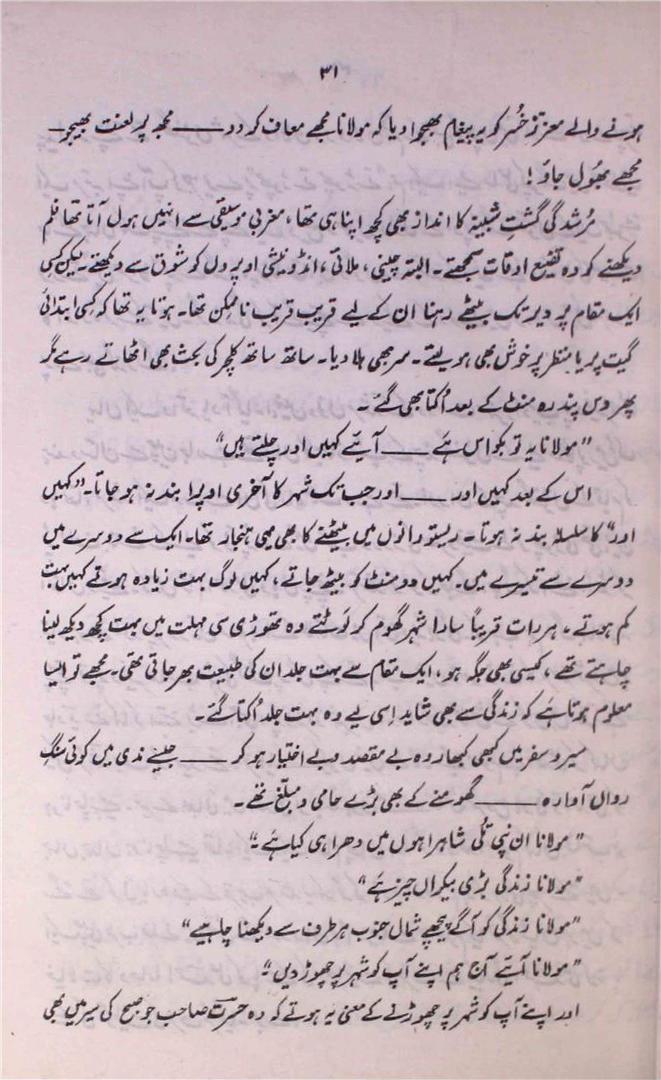 ۳۱
ہونے والے معزز خُسر کو یہ پیغام بھیجوا دیا کہ مولانا مجھے معاف کر دو ——— مجھ پر لعنت بھیجو—
مجھے بھُول جاؤ!
مُرشد کی گشتِ شبینہ کا انداز بھی کچھ اپنا ہی تھا، مغربی موسیقی سے انہیں ہول آتا تھا فلم
دیکھنے کو وہ تضیع اوقات سمجھتے۔ البتہ چینی، ملائی، انڈونیشی اوپروں کو شوق سے دیکھتے۔ لیکن کسی
ایک مقام پر دیر تک بیٹھے رہنا ان کے لیے قریب قریب ناممکن تھا۔ ہوتا یہ تھا کہ کسی ابتدائی
گیت پر یا منظر پر خوش بھی ہو لیتے۔ سر بھی ہلا دیا۔ ساتھ ساتھ کلچر کی بحث بھی اٹھاتے رہے مگر
پھر دس پندرہ منٹ کے بعد اُکتا بھی گئے۔
”مولانا یہ تو بکواس ہے ——— آیئے کہیں اور چلتے ہیں“
اس کے بعد کہیں اور ——— اور جب تک شہر کا آخری اوپرا بند نہ ہو جاتا۔ ”کہیں
اور“ کا سلسلہ بند نہ ہوتا۔ ریستورانوں میں بیٹھنے کا بھی یہی ہنجار تھا۔ ایک سے دوسرے میں
دوسرے سے تیسرے میں۔ کہیں دو منٹ کو بیٹھ جاتے، کہیں لوگ بہت زیادہ ہوتے کہیں بہت
کم ہوتے۔ ہر رات قریباً سارا شہر گھوم کر لَوٹتے وہ تھوڑی سی مہلت میں بہت کچھ دیکھ لینا
چاہتے تھے، کیسی بھی جگہ ہو، ایک مقام سے بہت جلد ان کی طبیعت بھر جاتی تھی۔ مجھے تو ایسا
معلوم ہوتا ہے کہ زندگی سے بھی شاید اِسی لیے وہ بہت جلد اُکتا گئے۔
سیر و سفر میں کبھی کبھار وہ بے مقصد و بے اختیار ہو کر ——— جیسے ندی میں کوئی سنگِ
رواں آوارہ ——— گھومنے کے بھی بڑے حامی و مبلّغ تھے۔
”مولانا ان نپی تُلی شاہراہوں میں دھرا ہی کیا ہے۔“
”مولانا زندگی بڑی بیکراں چیز ہے“
”مولانا زندگی کو آگے پیچھے شمال جنوب ہر طرف سے دیکھنا چاہیے“
”مولانا آیئے آج ہم اپنے آپ کو شہر پر چھوڑ دیں۔“
اور اپنے آپ کو شہر پر چھوڑنے کے معنی یہ ہوتے کہ وہ حسرتؔ صاحب جو صبح کی سیر میں بھی